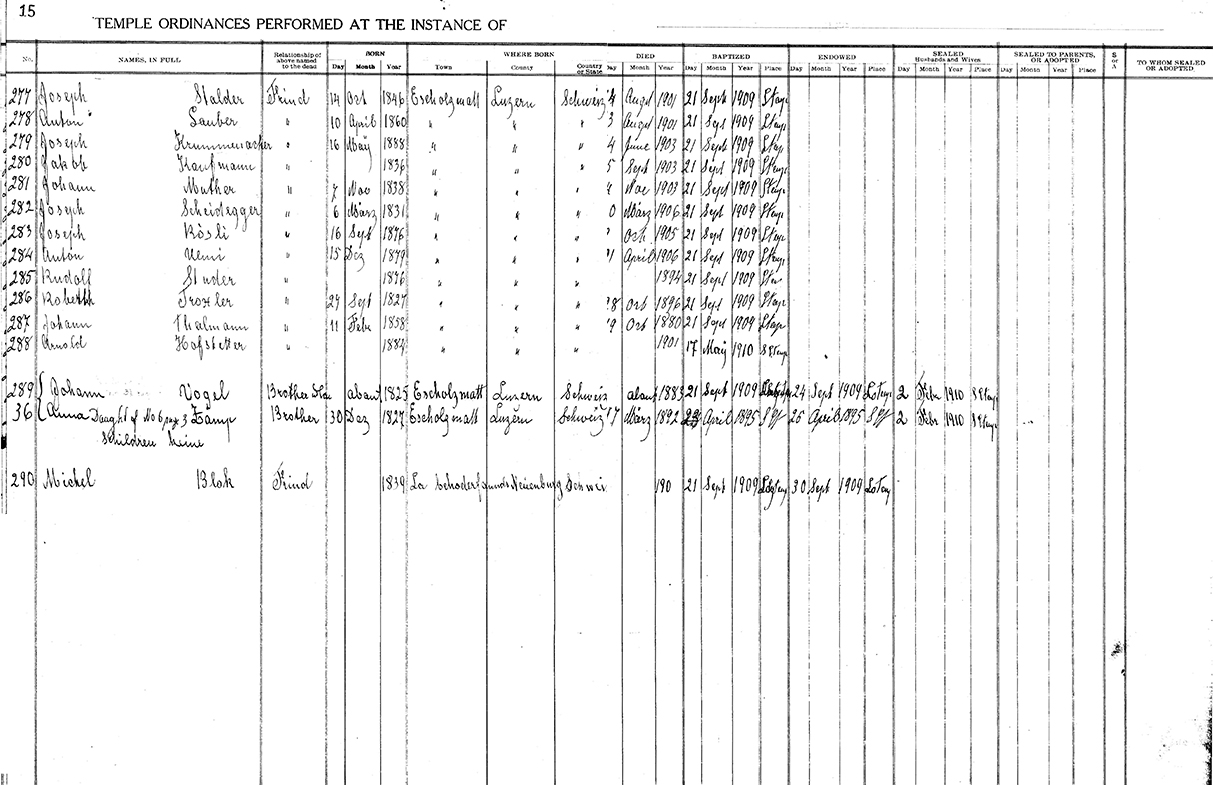 15
TEMPLE ORDINANCES PERFORMED AT THE INSTANCE OF
No. NAMES, IN FULL Relationship of above named to the dead BORN Day Month Year WHERE BORN Town County Country or State DIED Day Month Year BAPTIZED Day Month Year Place ENDOWED Day Month Year Place SEALED Husbands and Wives Day Month Year Place SEALED TO PARENTS, OR ADOPTED Day Month Year Place S or A TO WHOM SEALED OR ADOPTED
277 Joseph Stalder Frind 14 Oct 1846 Escholzmatt Luzern Schweiz 4 Augst 1901 21 Sept 1909
278 Anton Sauber " 10 April 1860 " " " 3 Augst 1901 21 Sept 1909
279 Joseph Krummenacher " 16 Maÿ 1888 " " " 4 June 1903 21 Sept 1909
280 Jakob Kaufmann " 1836 " " " 5 Sept 1903 21 Sept 1909
281 Johann Muther " 7 Nov 1838 " " " Nov 1903 21 Sept 1909
282 Joseph Scheidegger " 6 März 1831 " " " 0 März 1906 21 Sept 1909
283 Joseph Rösli " 16 Sept 1876 " " " Oct 1905 21 Sept 1909
284 Anton " 15 Dez 1879 " " " April 1906 21 Sept 1909
285 Rudolf Studer " 1876 " " " 1894 21 Sept 1909
286 Troxler " 27 Sept 1827 " " " 8 Oct 1896 21 Sept 1909
287 Johann Thalmann " 11 Febr 1838 " " " 9 Oct 1880 21 Sept 1909
288 Arnold Hofstetter " 1884 " " " 1901 17 Maÿ 1910
289 Johann Vogel Brother about 1825 Escholzmatt Luzern Schweiz about 1883 21 Sept 1909 24 Sept 1909 2 Febr 1910
36 Anna Daught of No 6 page 3 Zamp Brother 30 Dez 1827 Escholzmatt Luzern Schweiz 17 März 1892 April 1895 25 April 1895 2 Febr 1910
Schildren keine
290 Michel Blok Frind 1839 La Neuenburg Schwei 190 21 Sept 1909 30 Sept 1909